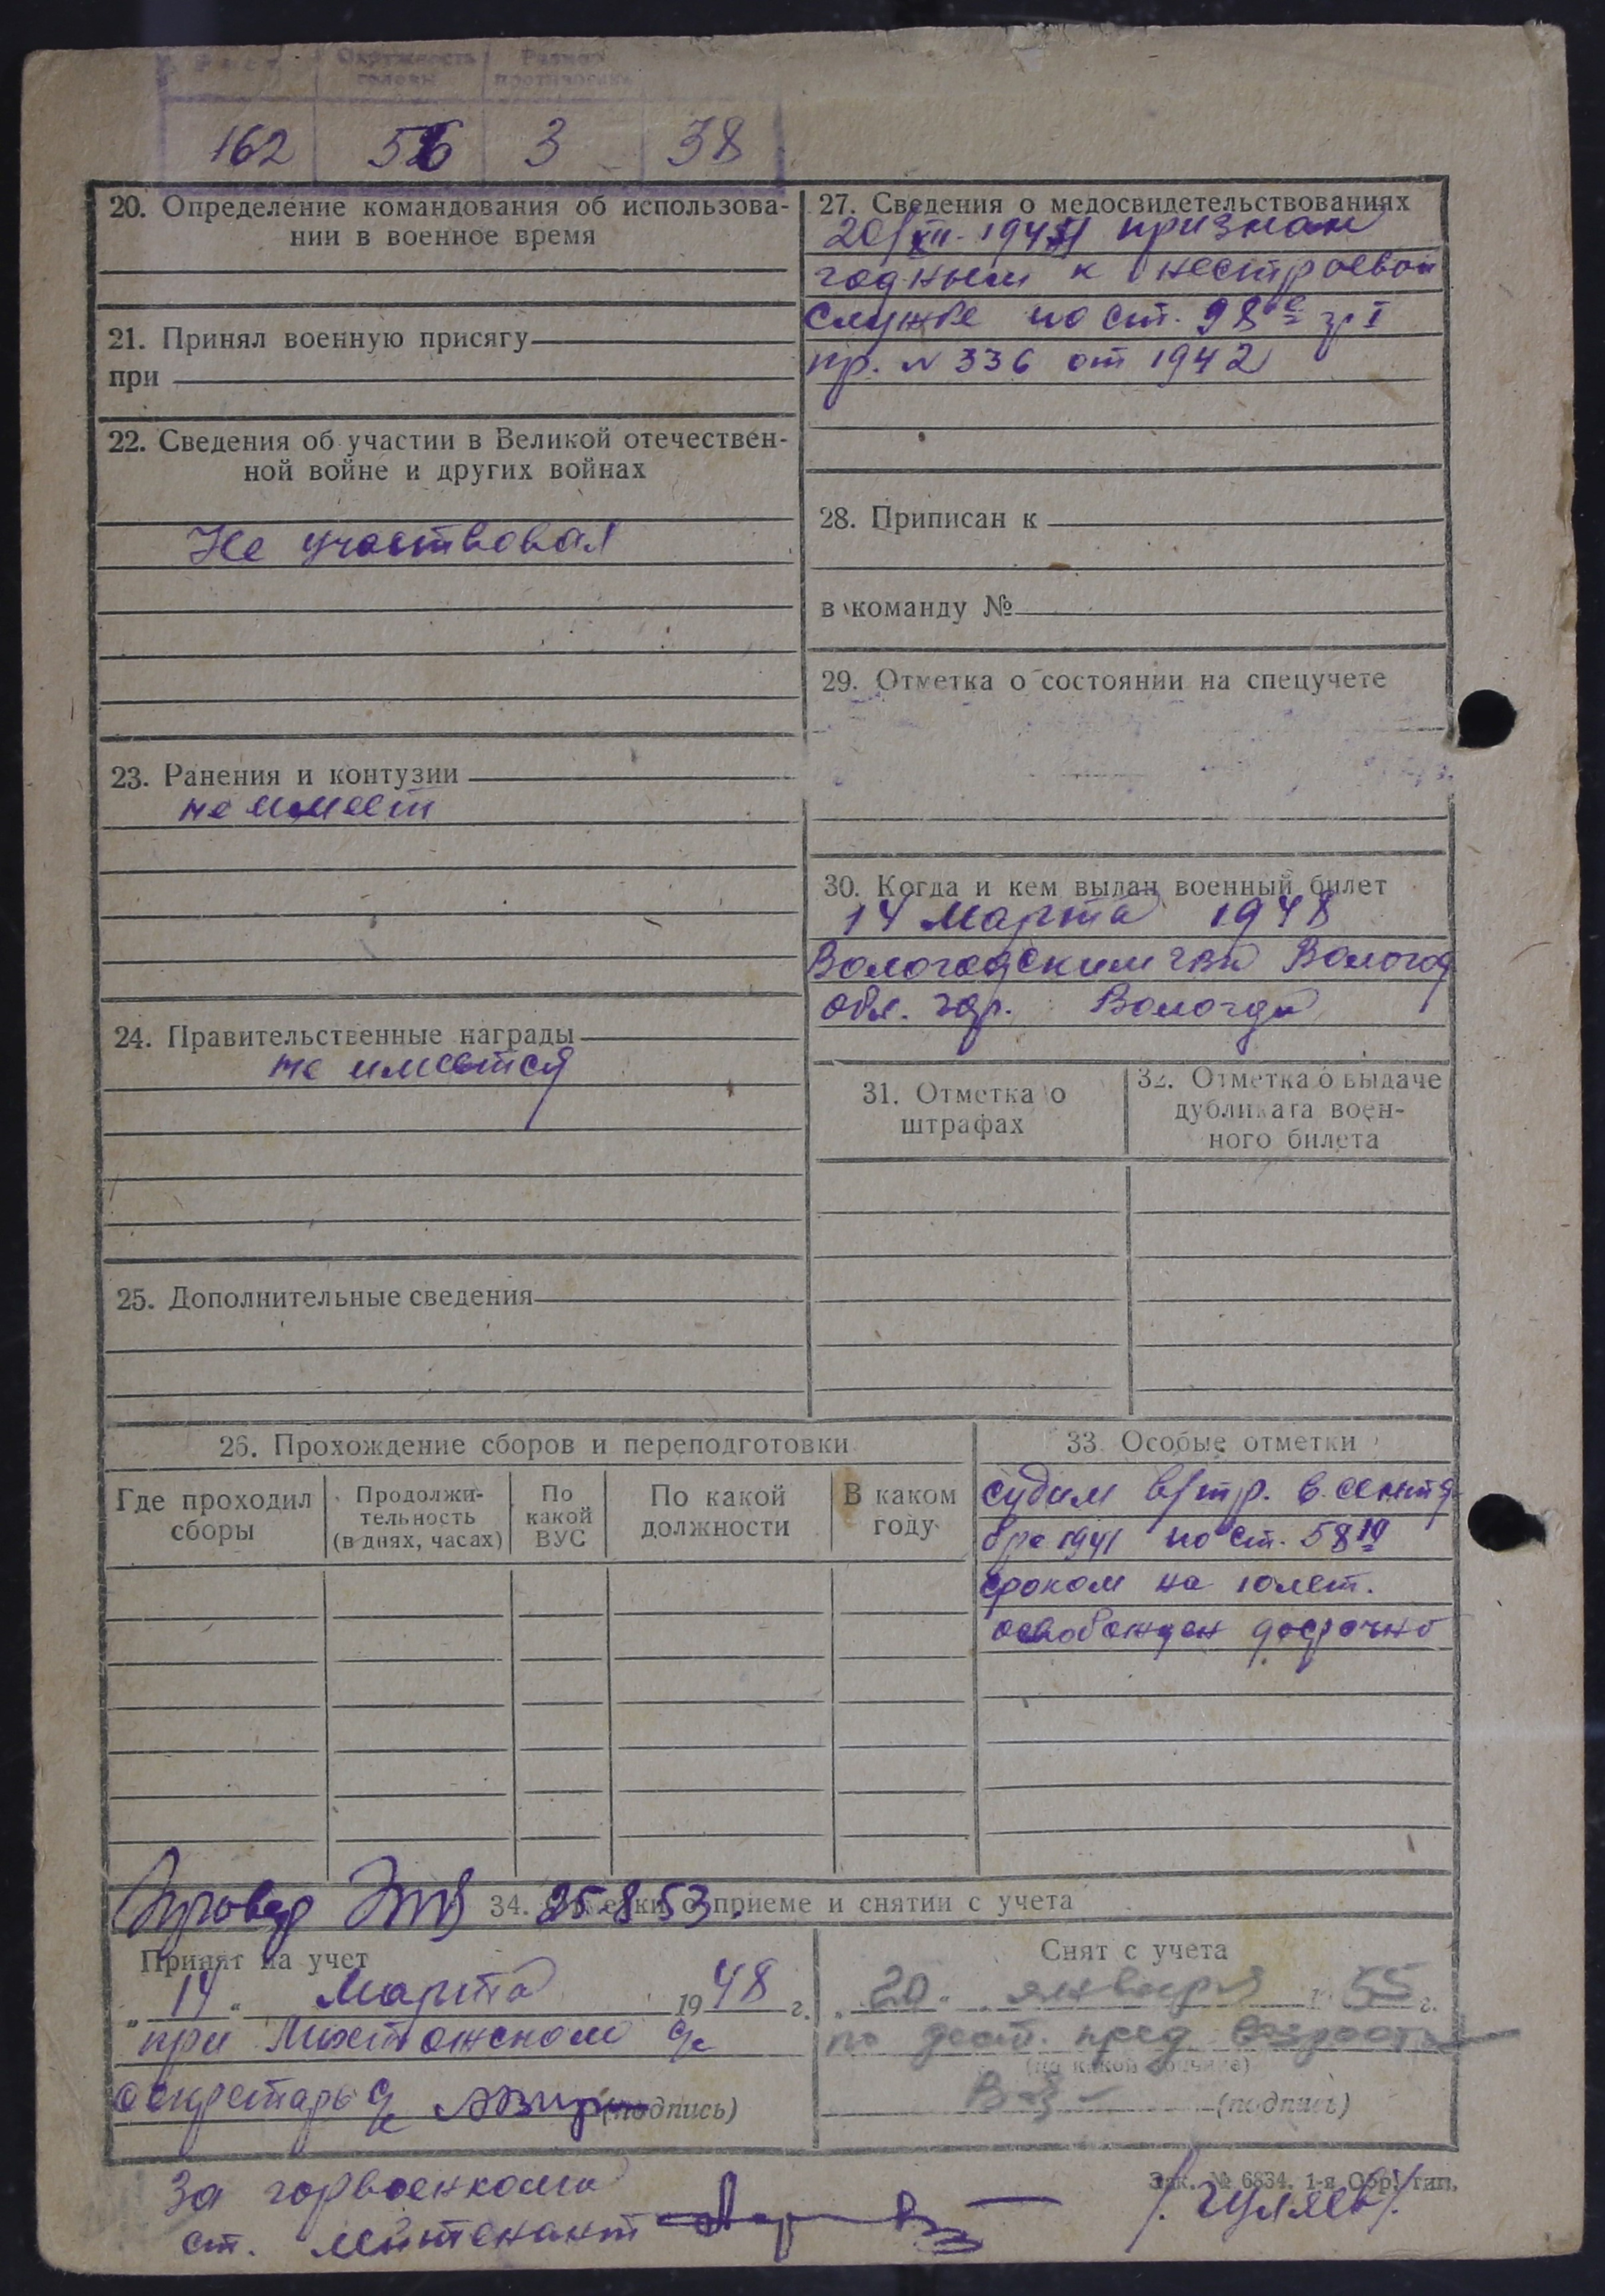 Рост Окружность головы Размер противогаза
162 56 3 38
20. Определение командования об использова-
нии в военное время
21. Принял военную присягу
при
22. Сведения об участии в Великой отечествен-
ной войне и других войнах
Не участвовал
23. Ранения и контузии
не имеет
24. Правительственные награды
не имеется
25. Дополнительные сведения
27. Сведения о медосвидетельствованиях
20/XII-1941 признан
годным к нестроевой
службе по ст. 98 гр I
пр. N 336 от 1942
28. Приписан к
в команду №
29. Отметка о состоянии на спецучете
30. Когда и кем выдан военный билет
14 Марта 1948
Вологодским гвк Волог
обл. гор. Вологда
31. Отметка о
штрафах
32. Отметка о выдаче
дубликата воен-
ного билета
26. Прохождение сборов и переподготовки
Где проходил
сборы
Продолжи-
тельность
(в днях, часах)
По
какой
ВУС
По какой
должности
В каком
году
33. Особые отметки
судим в/тр. в сентя
бре 1941 по ст. 58 10
сроком на 10 лет.
освобожден досрочно
25.8.53.
34. Отметки о приеме и снятии с учета
Принят на учет
„14“ Марта 1948 г.
при
секретарь (подпись)
Снят с учета
„20“ января 1955 г.
по дост. пред возраста
(по какой причине)
(подпись)
За горвоенкома
ст. лейтенант /Гуляев/
Зак. № 6834. 1-я Обр. тип.